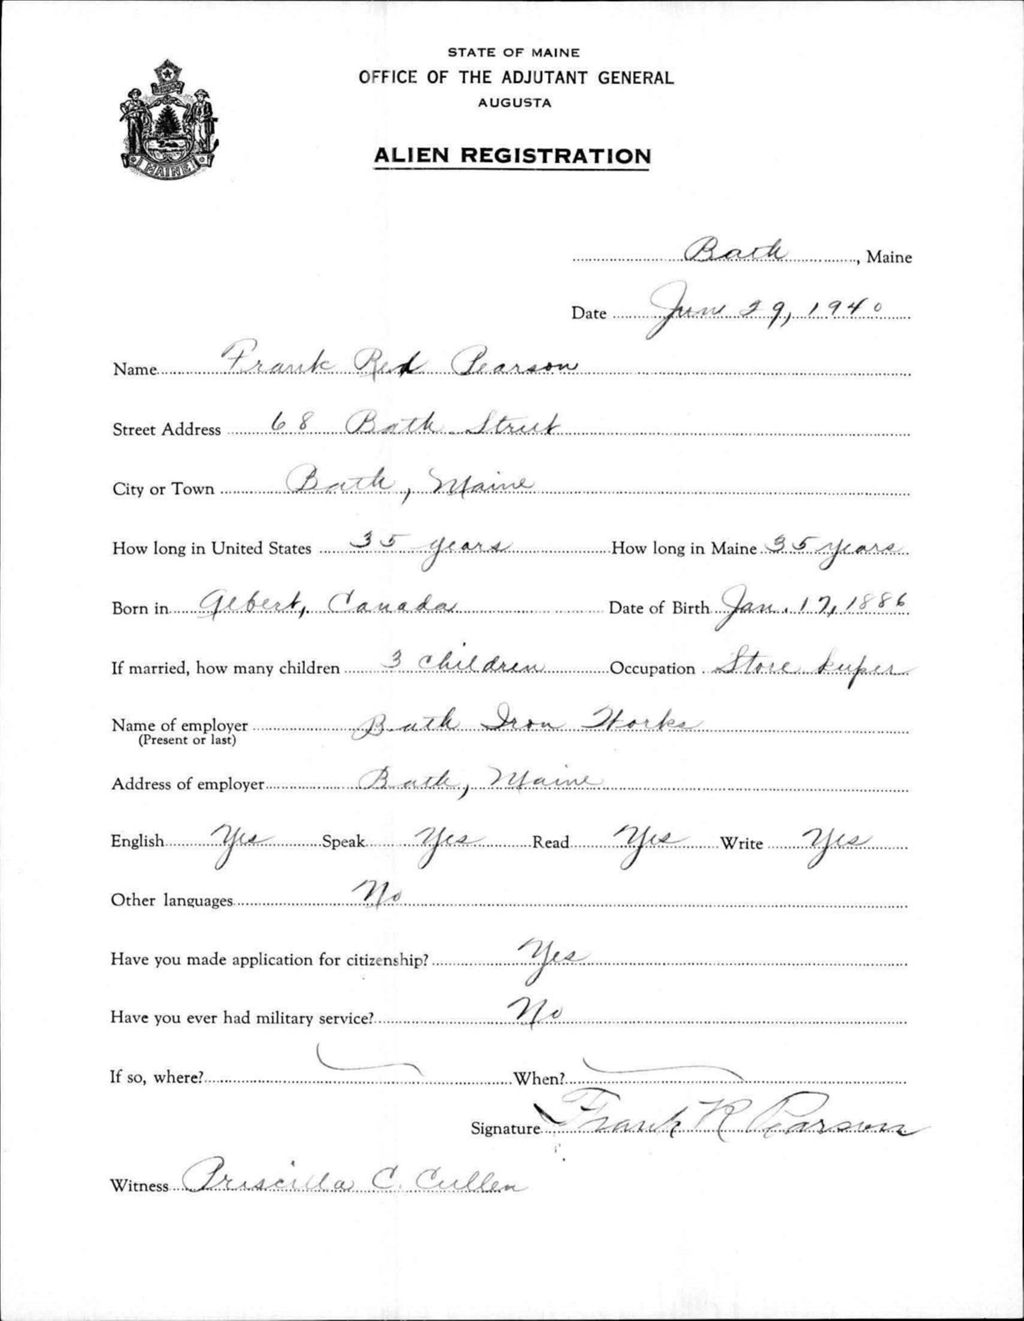 STATE OF MAINE
OFFICE OF THE ADJUTANT GENERAL
AUGUSTA
ALIEN REGISTRATION
MAINE
Bath, Maine
Date June 29, 1940
Name Frank Red Pearson
Street Address 68 Bath Street
City or Town Bath, Maine
How long in United States 35 years How long in Maine 35 years
Born in Albert, Canada Date of Birth Jan. 17, 1886
If married, how many children 3 children Occupation Store Super
Name of employer Bath Iron Works
(Present or last)
Address of employer Bath, Maine
English Yes Speak Yes Read Yes Write Yes
Other languages No
Have you made application for citizenship? Yes
Have you ever had military service? No
If so, where? When?
Signature Frank R Pearson
Witness Priscilla C. Cullen